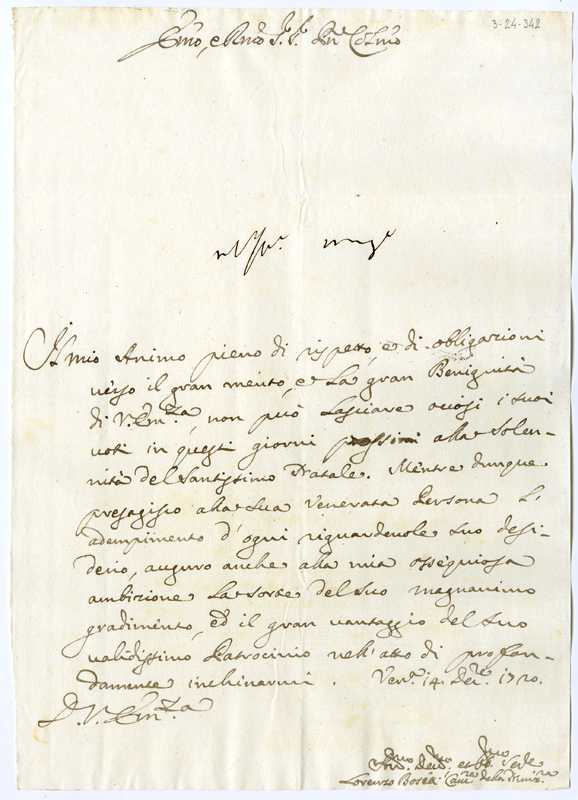 3-24-342
Em̃o, e Rmõ Sr. Sr. Pn̄e Colmo
Il mio Animo pieno di rispetto, e di obligazioni
verso il gran merito, e la gran Benignità
di V. Em.za, non può lasciare ociosi i suoi
voti in questi giorni prossimi alla Solen-
nità del Santissimo Natale. Mentre dunque
presagisco alla sua Venerata Persona l'
adempimento d'ogni riguardevole suo desi-
derio, auguro anche alla mia ossequiosa
ambizione la sorte del suo magnanimo
gradimento, ed il gran vantaggio del suo
validissimo Patrocinio nell'atto di profon-
damente inchinarmi. Ven.a 14. Dec.e 1720.
D. V. Em.za
Lorenzo